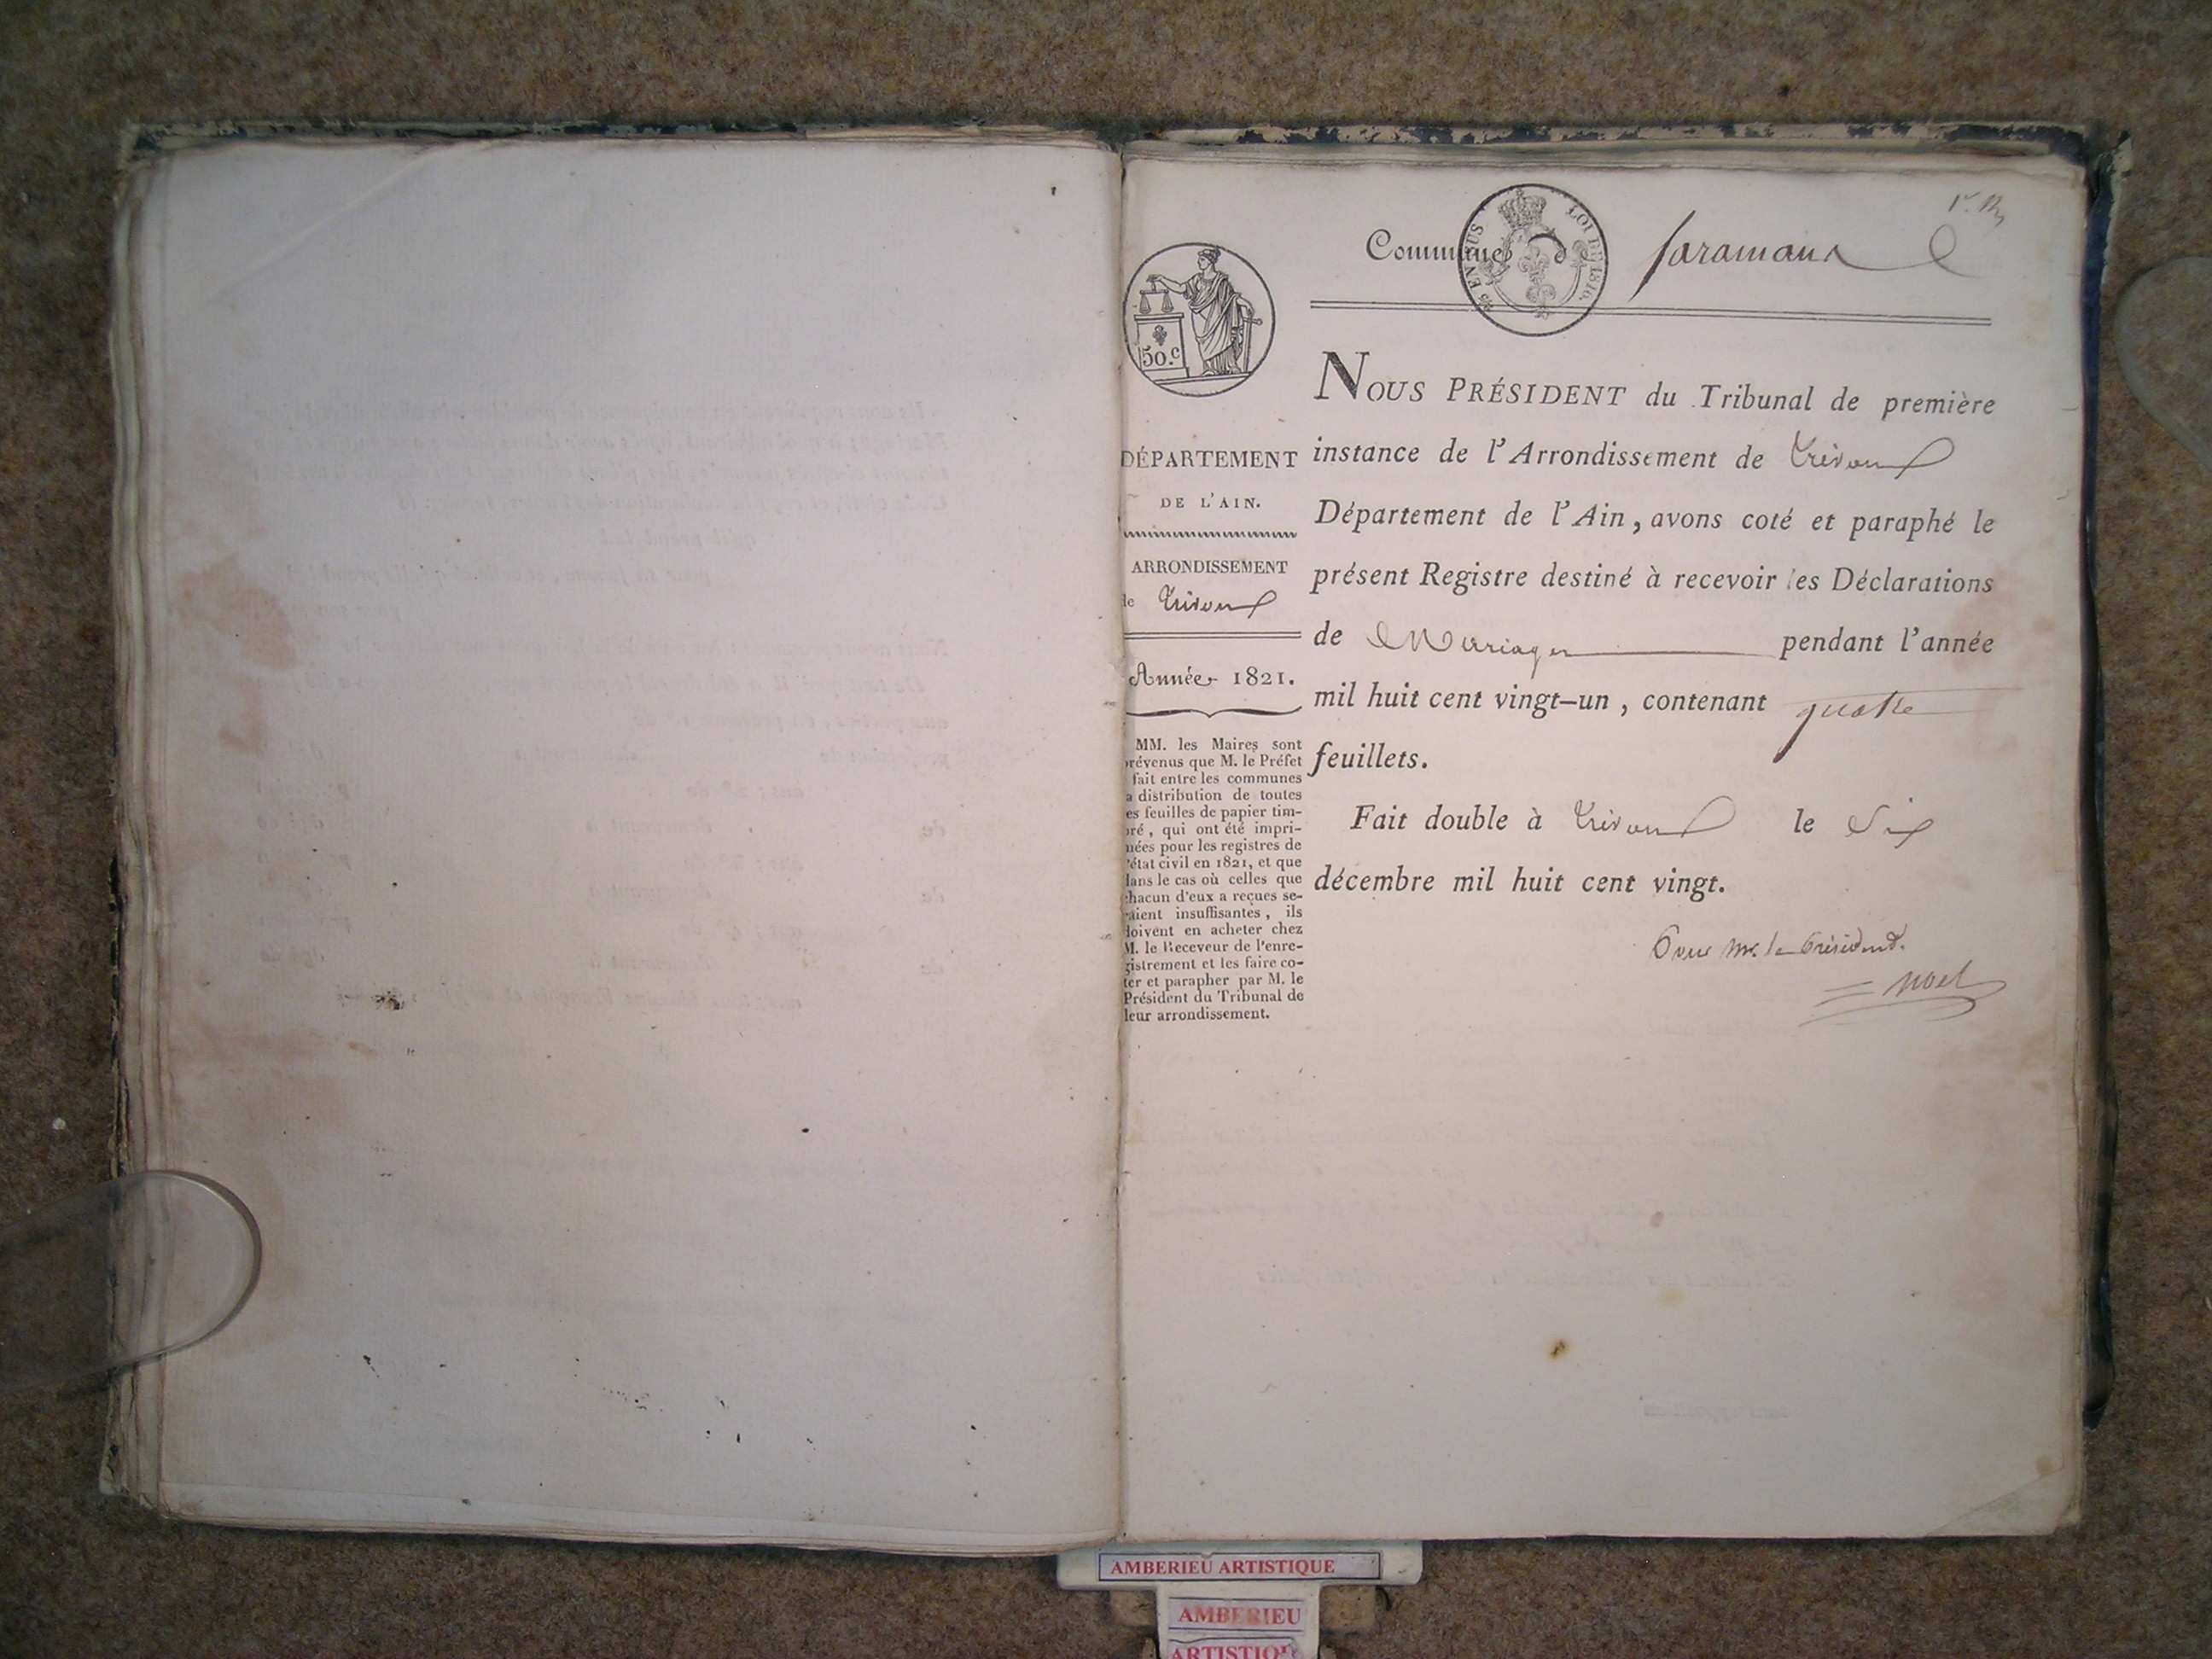 Commune de faramans
EN SUS
LOI DE 1816.
50.c
DÉPARTEMENT
DE L'AIN.
ARRONDISSEMENT
de Trévoux
Année 1821.
MM. les Maires sont
prévenus que M. le Préfet
fait entre les communes
la distribution de toutes
les feuilles de papier tim-
bré, qui ont été impri-
mées pour les registres de
l'état civil en 1821, et que
dans le cas où celles que
chacun d'eux a reçues se-
raient insuffisantes, ils
doivent en acheter chez
M. le Receveur de l'enre-
gistrement et les faire co-
ter et parapher par M. le
Président du Tribunal de
leur arrondissement.
NOUS PRÉSIDENT du Tribunal de première
instance de l'Arrondissement de Trévoux
Département de l'Ain, avons coté et paraphé le
présent Registre destiné à recevoir les Déclarations
de Mariages pendant l'année
mil huit cent vingt-un, contenant quatre
feuillets.
Fait double à Trévoux le Six
décembre mil huit cent vingt.
Pour Mr. le Président.
Noel
AMBERIEU ARTISTIQUE
AMBERIEU
ARTISTIQUE